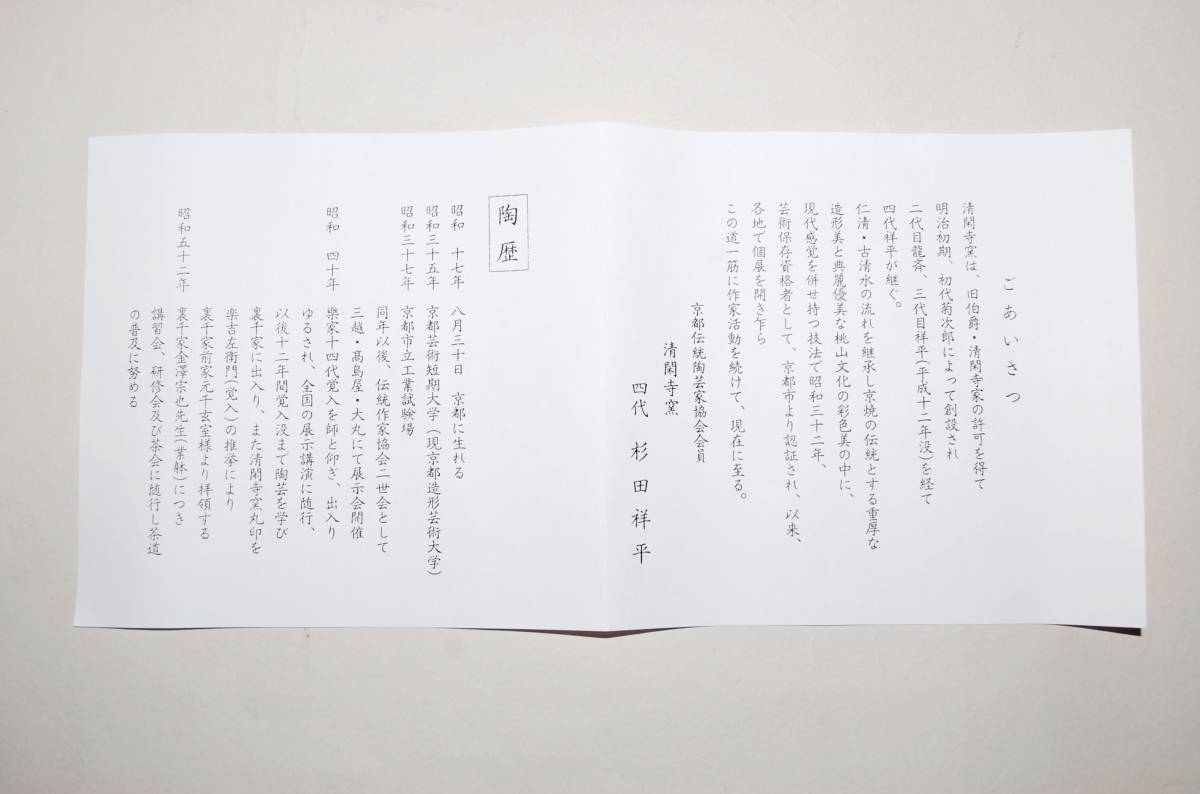 ごあいさつ
清閑寺窯は、旧伯爵・清閑寺家の許可を得て
明治初期、初代菊次郎によって創設され
二代目龍斉、三代目祥平(平成十二年没)を経て
四代祥平が継ぐ。
仁清・古清水の流れを継承し京焼の伝統とする重厚な
造形美と典麗優美な桃山文化の彩色美の中に、
現代感覚を併せ持つ技法で昭和三十二年、
芸術保存資格者として、京都市より認証され、以来、
各地で個展を開き乍ら
この道一筋に作家活動を続けて、現在に至る。
京都伝統陶芸家協会会員
清閑寺窯
四代 杉田祥平
陶歴
昭和 十七年 八月三十日 京都に生れる
昭和三十五年 京都芸術短期大学(現京都造形芸術大学)
昭和三十七年 京都市立工業試験場
同年以後、伝統作家協会二世会として
三越・髙島屋・大丸にて展示会開催
昭和 四十年 樂家十四代覚入を師と仰ぎ、出入り
ゆるされ、全国の展示講演に随行、
以後十二年間覚入没まで陶芸を学び
裏千家に出入り、また清閑寺窯丸印を
楽吉左衛門(覚入)の推挙により
裏千家前家元千玄室様より拝領する
昭和五十二年 裏千家金澤宗也先生(業躰)につき
講習会、研修会及び茶会に随行し茶道
の普及に努める